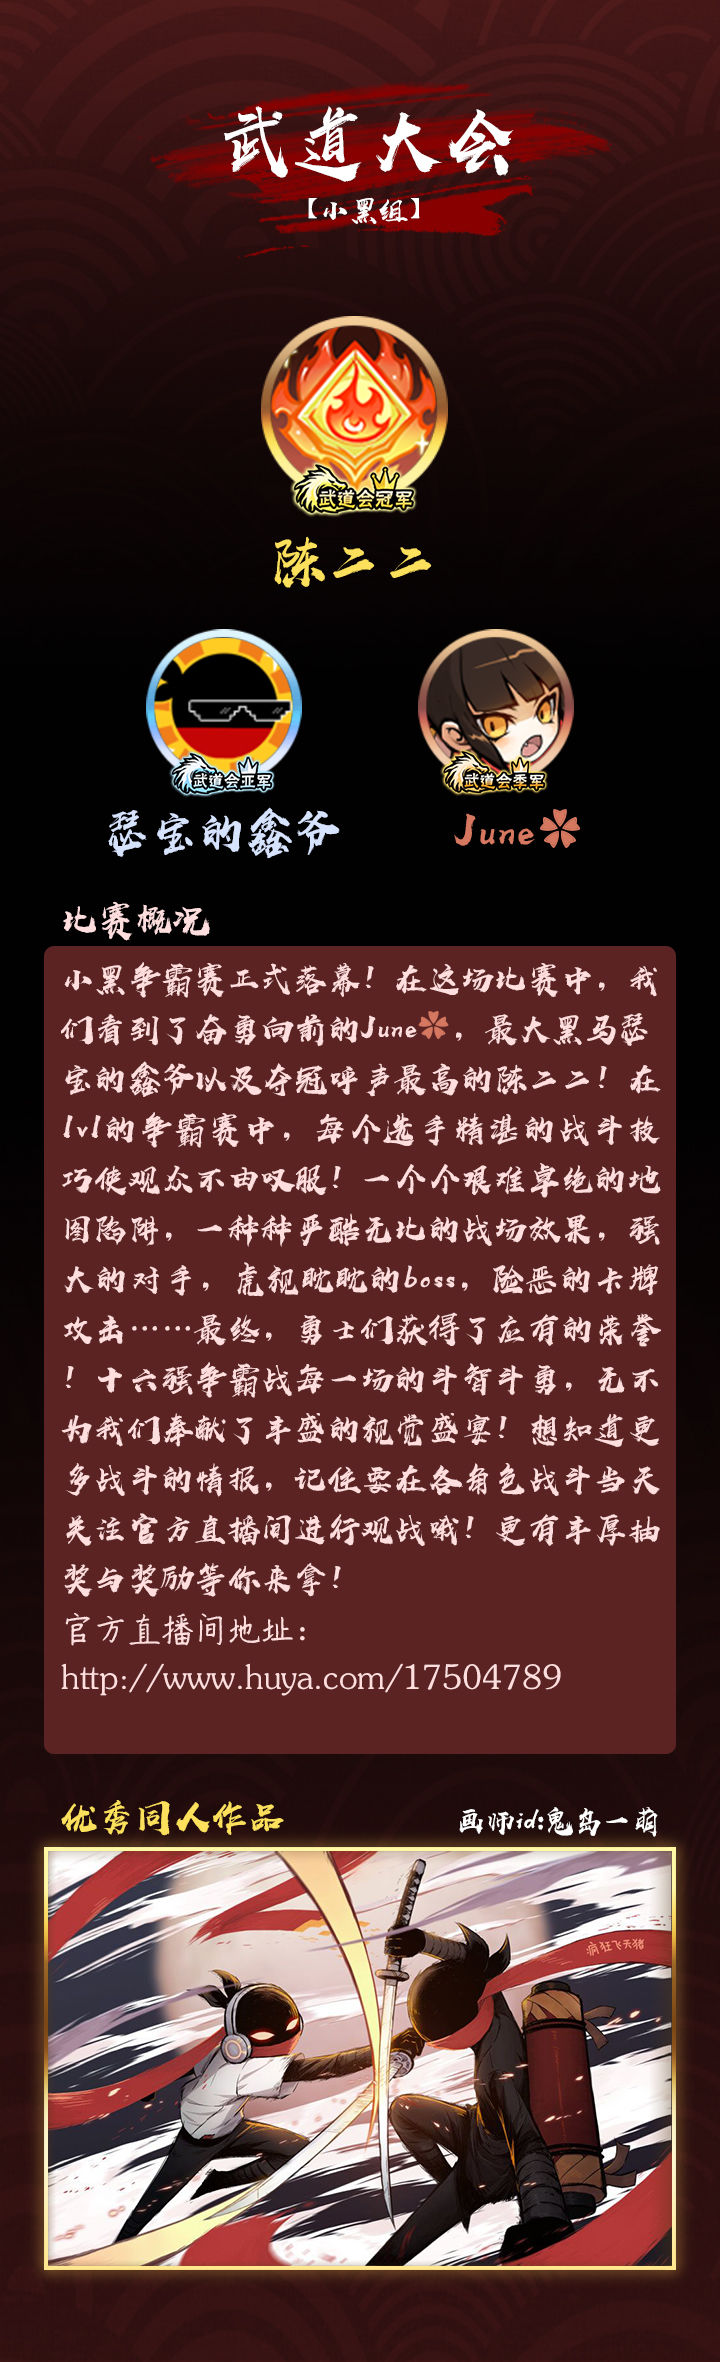 武道大会
【小黑组】
武道会冠军
陈二二
武道会亚军
武道会季军
瑟宝的鑫爷
June
比赛概况
小黑争霸赛正式落幕！在这场比赛中，我
们看到了奋勇向前的June，最大黑马瑟
宝的鑫爷以及夺冠呼声最高的陈二二！在
1v1的争霸赛中，每个选手精湛的战斗技
巧使观众不由叹服！一个个艰难卓绝的地
图陷阱，一种种严酷无比的战场效果，强
大的对手，虎视眈眈的boss，险恶的卡牌
攻击……最终，勇士们获得了应有的荣誉
！十六强争霸战每一场的斗智斗勇，无不
为我们奉献了丰盛的视觉盛宴！想知道更
多战斗的情报，记住要在各角色战斗当天
关注官方直播间进行观战哦！更有丰厚抽
奖与奖励等你来拿！
官方直播间地址：
http://www.huya.com/17504789
优秀同人作品
画师id:鬼岛一萌
疯狂飞天猪